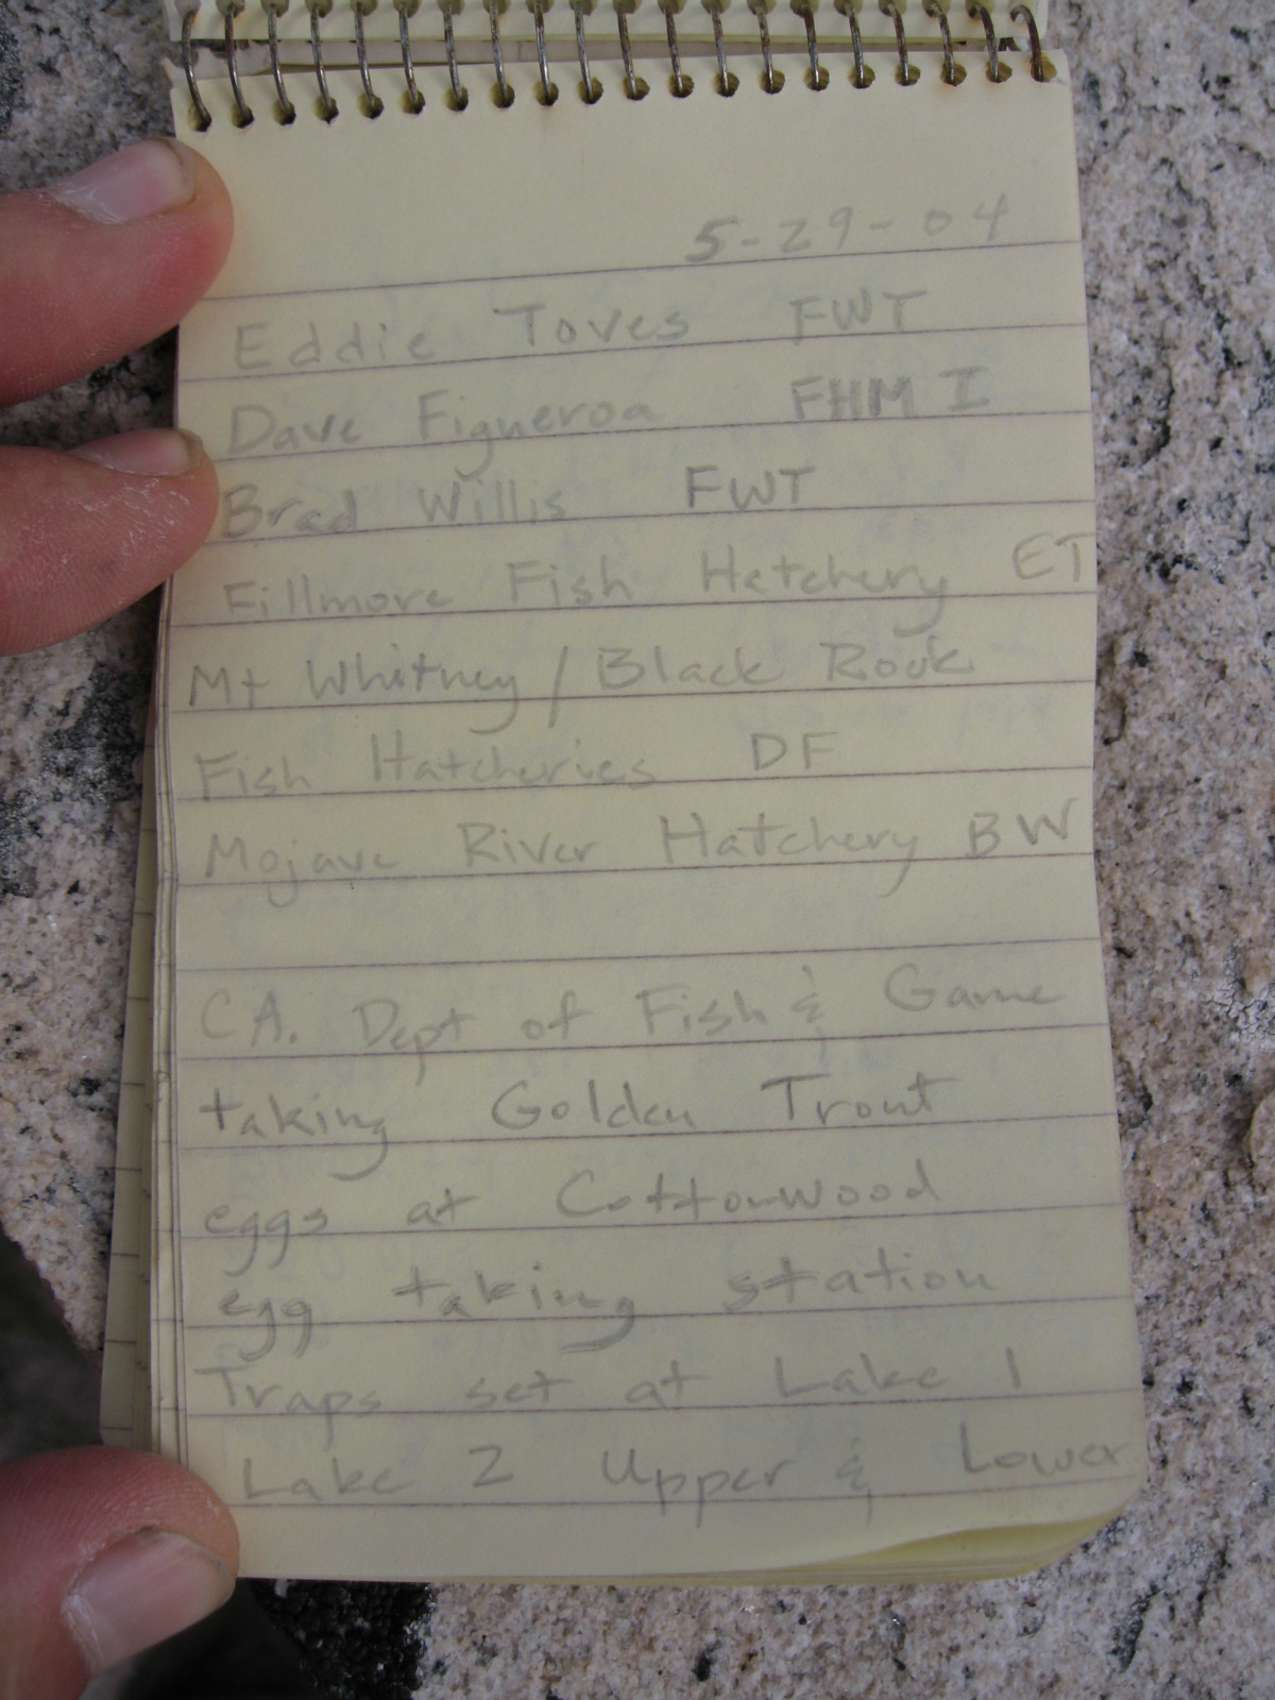 5-29-04
Eddie Toves FWT
Dave Figueroa FHM I
Brad Willis FWT
Fillmore Fish Hatchery ET
Mt Whitney / Black Rock
Fish Hatcheries DF
Mojave River Hatchery BW
CA. Dept of Fish & Game
taking Golden Trout
eggs at Cottonwood
egg taking station
Traps set at Lake 1
Lake 2 Upper & Lower